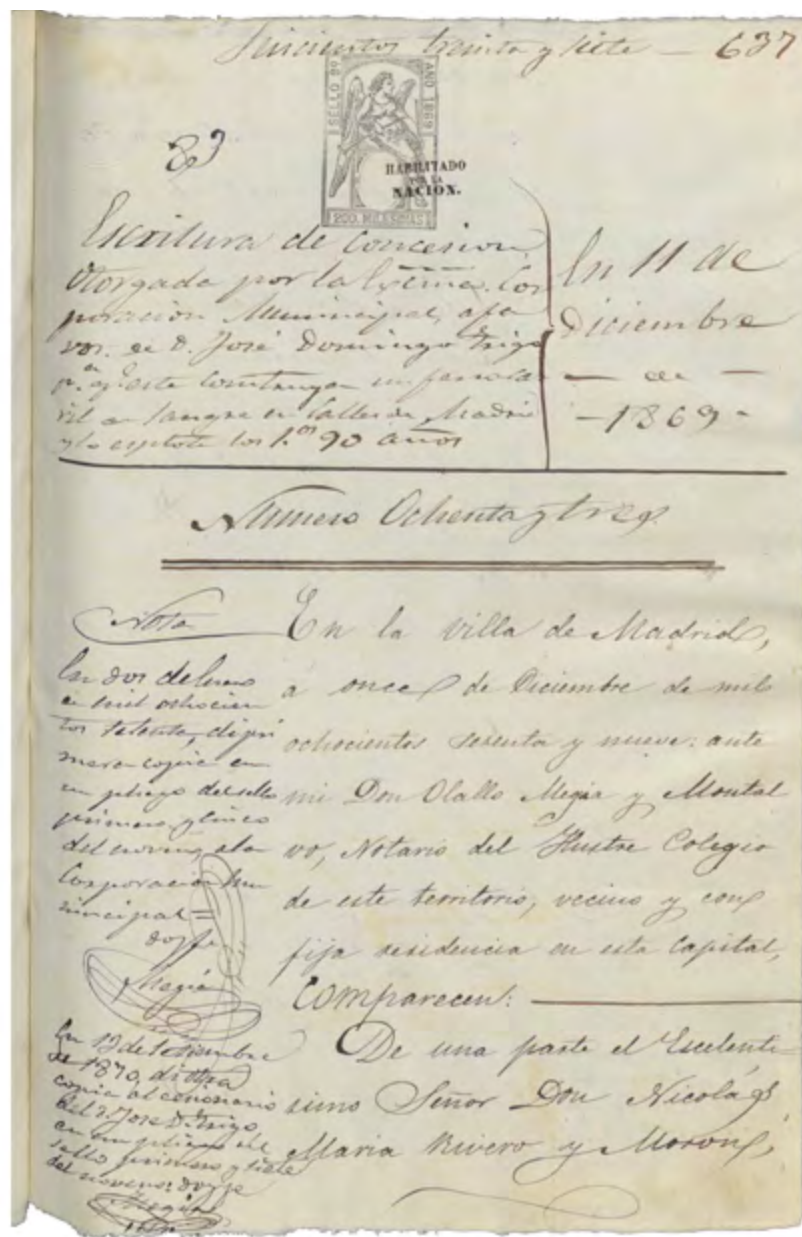 Seiscientos treinta y siete — 637
83
SELLO 9º AÑO 1869
HABILITADO
POR LA
NACION.
200 MILESIMAS
Escritura de concesion
otorgada por la Excma. Cor
poracion Municipal, a fa
vor de D. José Domingo Trigo
pª q. este construya un ferroca
rril de sangre en calles de Madrid
y lo esplote los 1.os 90 años
En 11 de
Diciembre
— de —
— 1869 —
Numero Ochenta y tres
Nota
En dos de Enero
de mil ochocien
tos setenta, di pri
mera copia en
un pliego del sello
primero y cinco
del noveno, a la
Corporacion Mu
nicipal =
doy fe
Megia
En 19 de Setiembre
de 1870, di otra
copia al cesionario
del D. José D. Trigo
en un pliego del
sello primero y siete
del noveno: doy fe
Megia
En la villa de Madrid,
a once de Diciembre de mil
ochocientos sesenta y nueve: ante
mi Don Olallo Megia y Montal
vo, Notario del Ilustre Colegio
de este territorio, vecino y con
fija residencia en esta Capital,
Comparecen:
De una parte el Escelenti
simo Señor Don Nicolás
Maria Rivero y